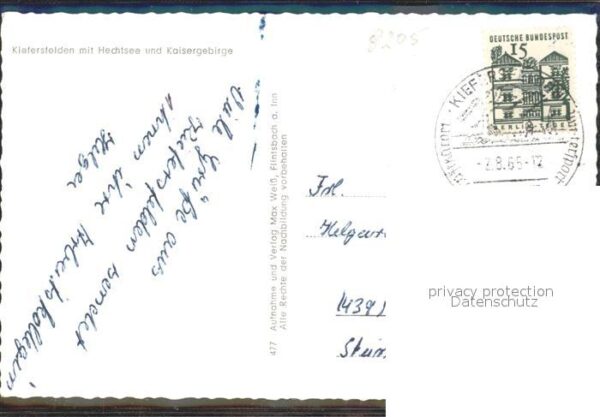 Kiefersfelden mit Hechtsee und Kaisergebirge
8205
Viele Grüße aus
Kiefersfelden sendet
Ihnen Ihre Arbeitskollegin
Helga
477 Aufnahme und Verlag Max Weiß, Flintsbach a. Inn
Alle Rechte der Nachbildung vorbehalten
DEUTSCHE BUNDESPOST
15
BERLIN-TEGEL
-2.8.65-12
Frl.
Helga
1439
privacy protection
Datenschutz